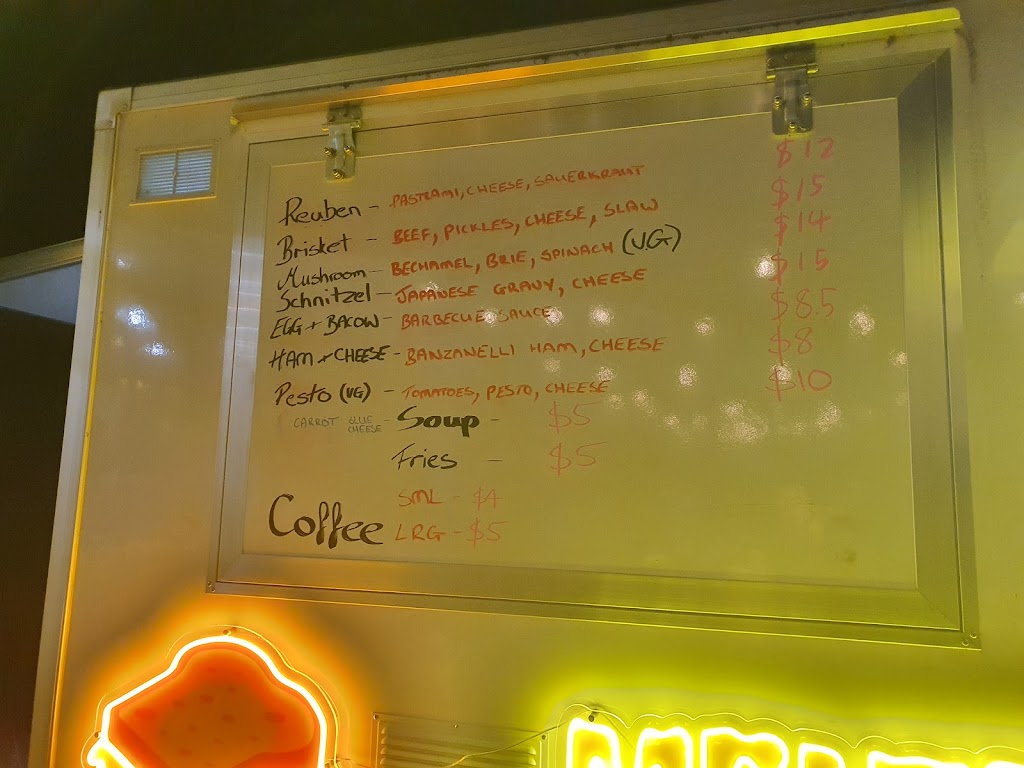 Reuben - PASTRAMI, CHEESE, SAUERKRAUT $12
Brisket - BEEF, PICKLES, CHEESE, SLAW $15
Mushroom - BECHAMEL, BRIE, SPINACH (VG) $14
Schnitzel - JAPANESE GRAVY, CHEESE $15
EGG + BACON - BARBECUE SAUCE $8.5
HAM + CHEESE - BANZANELLI HAM, CHEESE $8
Pesto (VG) - TOMATOES, PESTO, CHEESE $10
CARROT BLUE CHEESE - Soup - $5
Fries - $5
Coffee SML - $4
LRG - $5